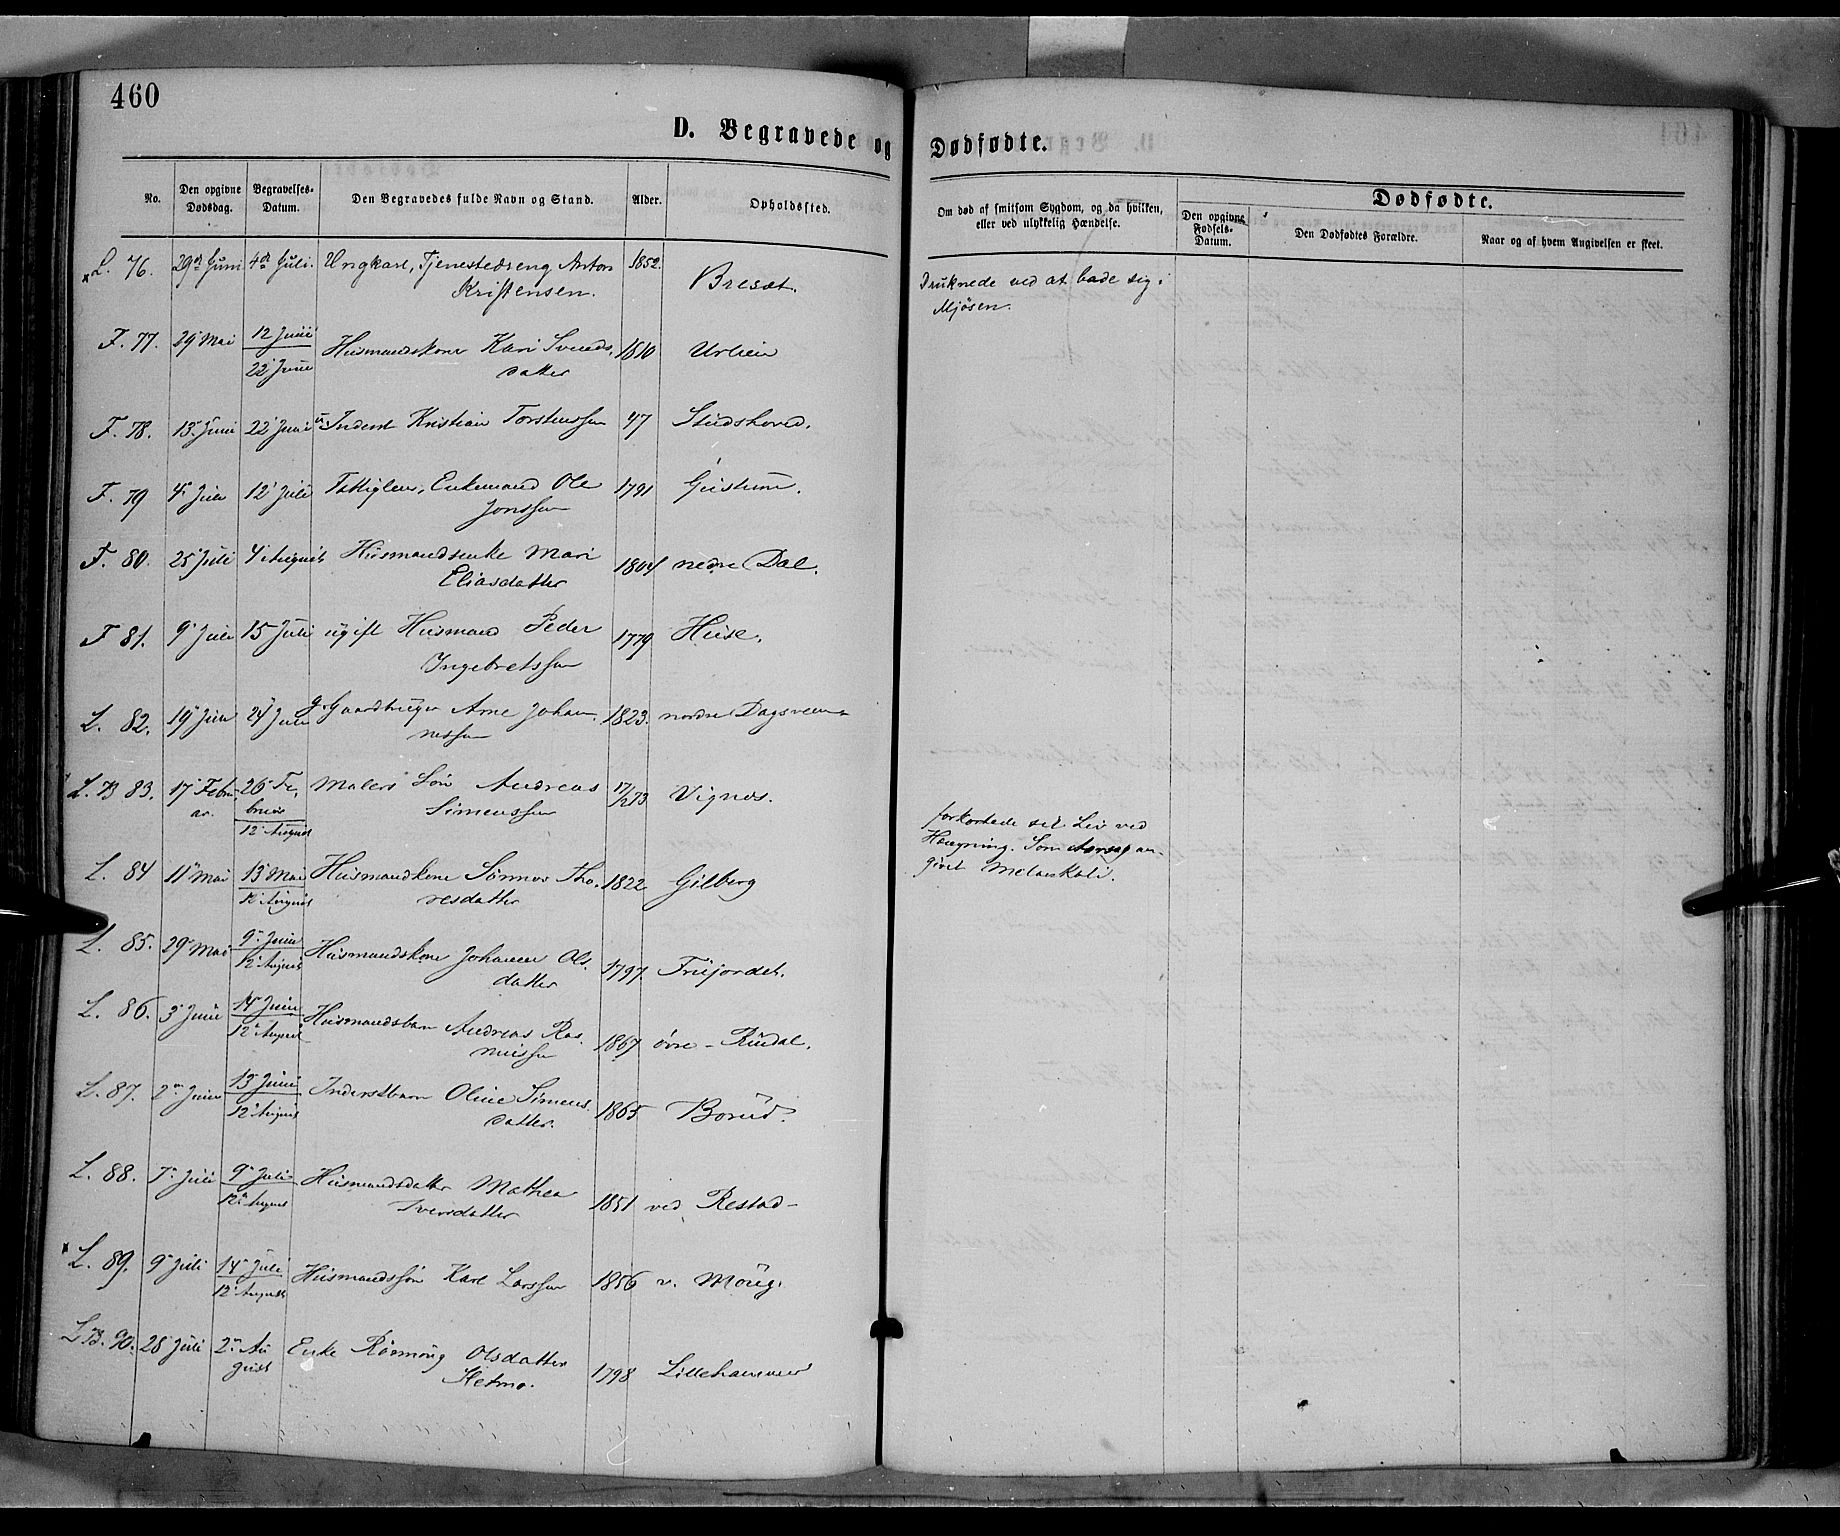 460
D. Begravede og Dødfødte.
No.
Den opgivne Dødsdag.
Begravelses-Datum.
Den Begravedes fulde Navn og Stand.
Alder.
Opholdssted.
Om død af smitsom Sygdom, og da hvilken, eller ved ulykkelig Hændelse.
Dødfødte.
Den opgivne Fødsels-Datum.
Den Dødfødtes Forældre.
Naar og af hvem Angivelsen er skeet.
L. 76. 29de Juni 4de Juli. Ungkarl, Tjenestedreng Anton 1852. Bresæt. Druknede ved at bade sig i
Kristensen. Mjøsen.
F. 77. 29 Mai 12 Juni Husmandskone Kari Svends 1810 Urlien
22 Juni datter
F. 78. 13 Juni 22 Juni Inderst Kristian Torstenssen 47 Studshoved.
F. 79 4 Juli 12 Juli Enkemand Ole 1791
Jonssen
F. 80. 25 Juli 4 August Husmandsenke Mari 1804 nedre Dal.
Eliasdatter
F 81. 9 Juli 15 Juli ugift Husmand Peder 1779 Huse.
Ingebretssen
L. 82. 19 Juli 24 Juli g. Gaardbruger Arne Johan 1823. nordre
nessen
L. B 83. 17 Febru 26 Fe Malers Søn Andreas 17/1273 Vignes.
ar. bruar Simenssen
12 August
forkortede sit Liv ved
Hængning. Som Aarsag an-
givet Melankoli.
L. 84 11 Mai 15 Mai Husmandskone Tho. 1822 Gilberg
12 August resdatter
L. 85. 29 Mai 9 Juni Husmandskone Johanne Ols. 1797. Frujordet.
12 August datter
L. 86. 3 Juni 14 Juni Husmandsbarn Andreas Ras 1867 øvre Rudal.
12 August mussen
L. 87. 2 Juni 13 Juni Inderstbarn Oline Simens 1865 Borud.
12 August datter.
L. 88. 7 Juli 9 Juli Husmandsdatter Mathea 1851 ved Restad
12 August Iversdatter
L. 89. 9 Juli 14 Juli Husmandssøn Karl Larssen 1856 v. Moug.
12 August
L B. 90. 28 Juli 2 Au Enke Olsdatter 1798 Lillehammer
gust